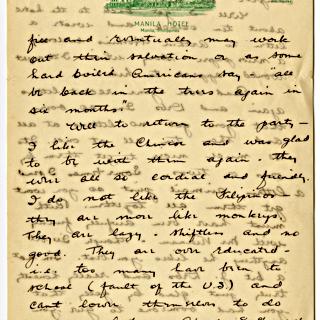 MANILA HOTEL
Manila, Philippines
free and eventually may work
out their salvation or as some
hard boiled Americans say "all
be back in the trees again in
six months."
Well to return to the party —
I like the Chinese and was glad
to be with them again. They
were all so cordial and friendly.
I do not like the Filipinos —
they are more like monkeys.
They are lazy shiftless and no
good. They are over educated —
i.e. too many have been to
school (fault of the U.S.) and
can't lower themselves to do